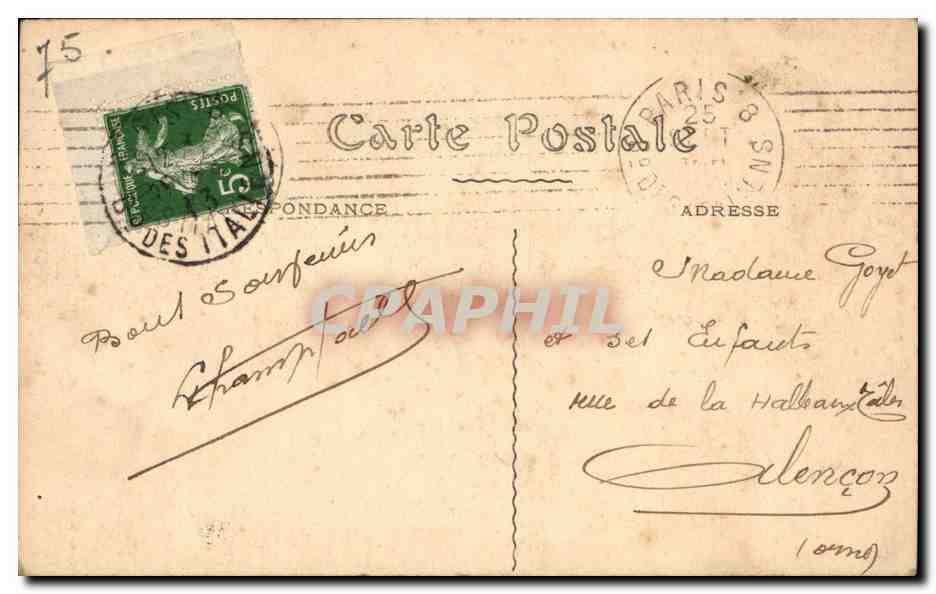 75
POSTES
5c
DES ITAL
PARIS 8
25
Carte Postale
PONDANCE
ADRESSE
Bons Souvenirs
Madame Goyet
et ses Enfants
rue de la Halle aux Toiles
Alençon
(orne)
CPAPHIL